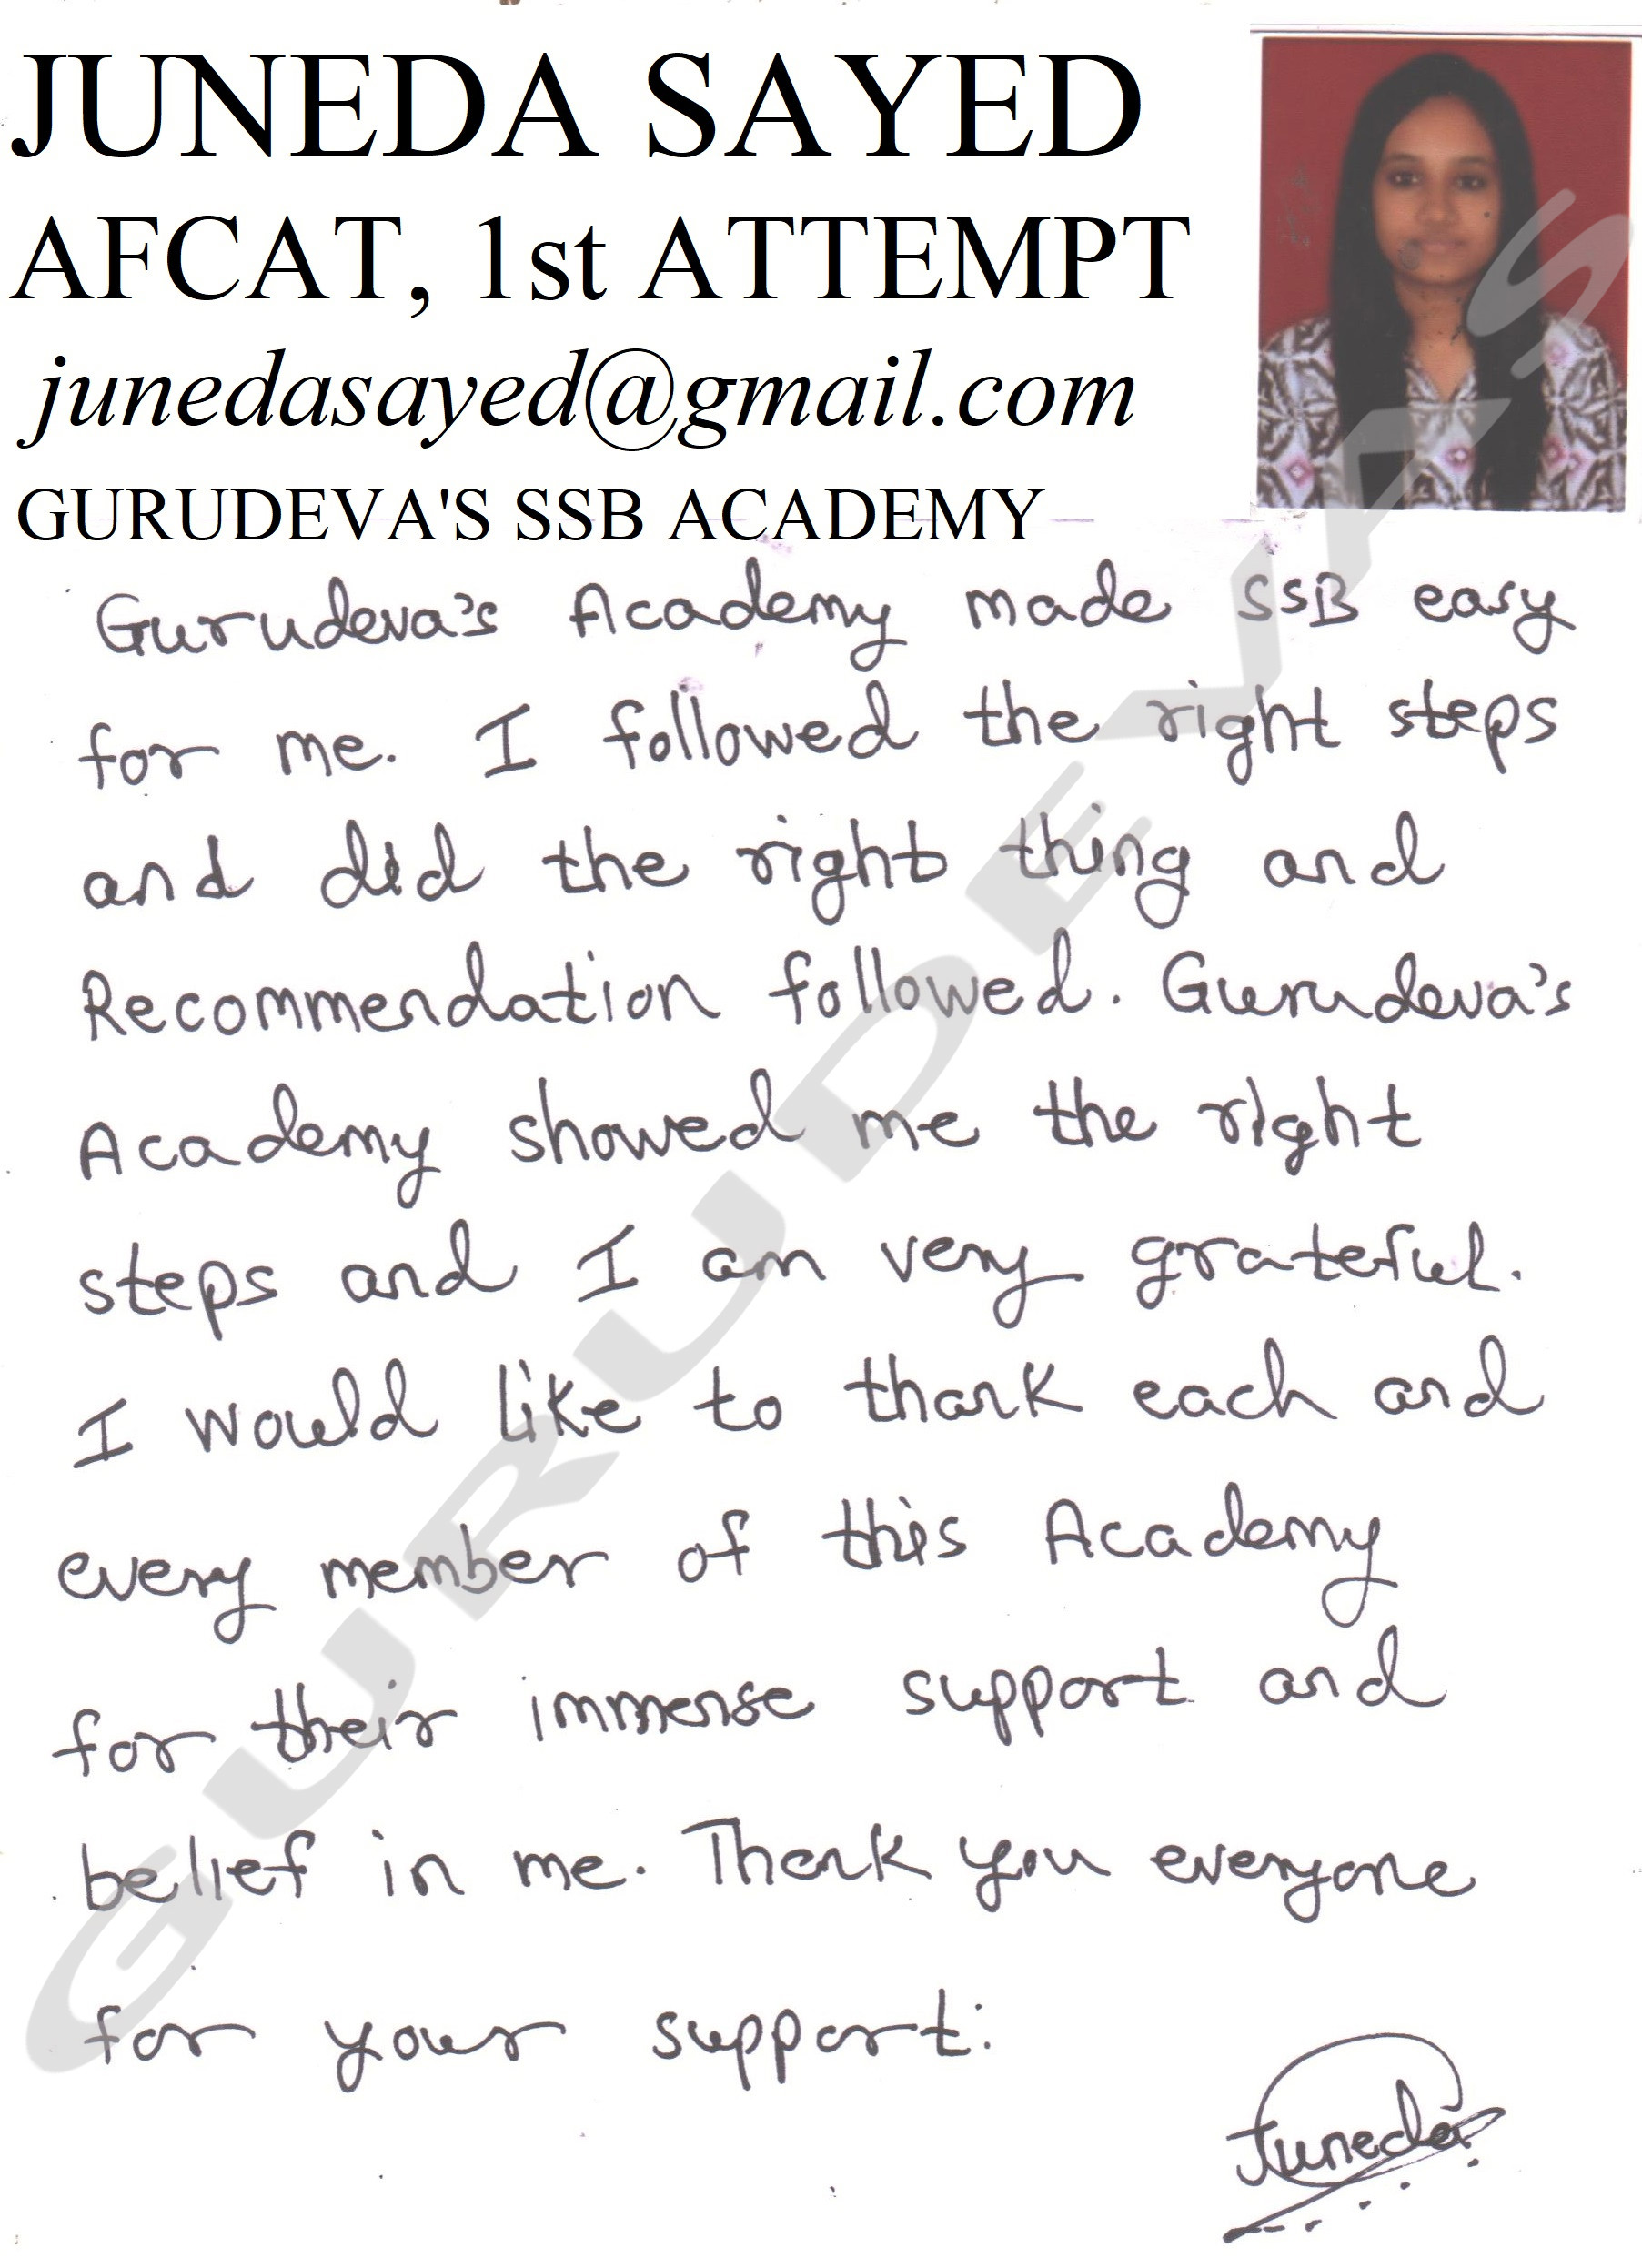 JUNEDA SAYED
AFCAT, 1st ATTEMPT
junedasayed@gmail.com
GURUDEVA'S SSB ACADEMY
Gurudeva's Academy made SSB easy
for me. I followed the right steps
and did the right thing and
Recommendation followed. Gurudeva's
Academy showed me the right
steps and I am very grateful.
I would like to thank each and
every member of this Academy
for their immense support and
belief in me. Thank you everyone
for your support.
Juneda
GURUDEVAS